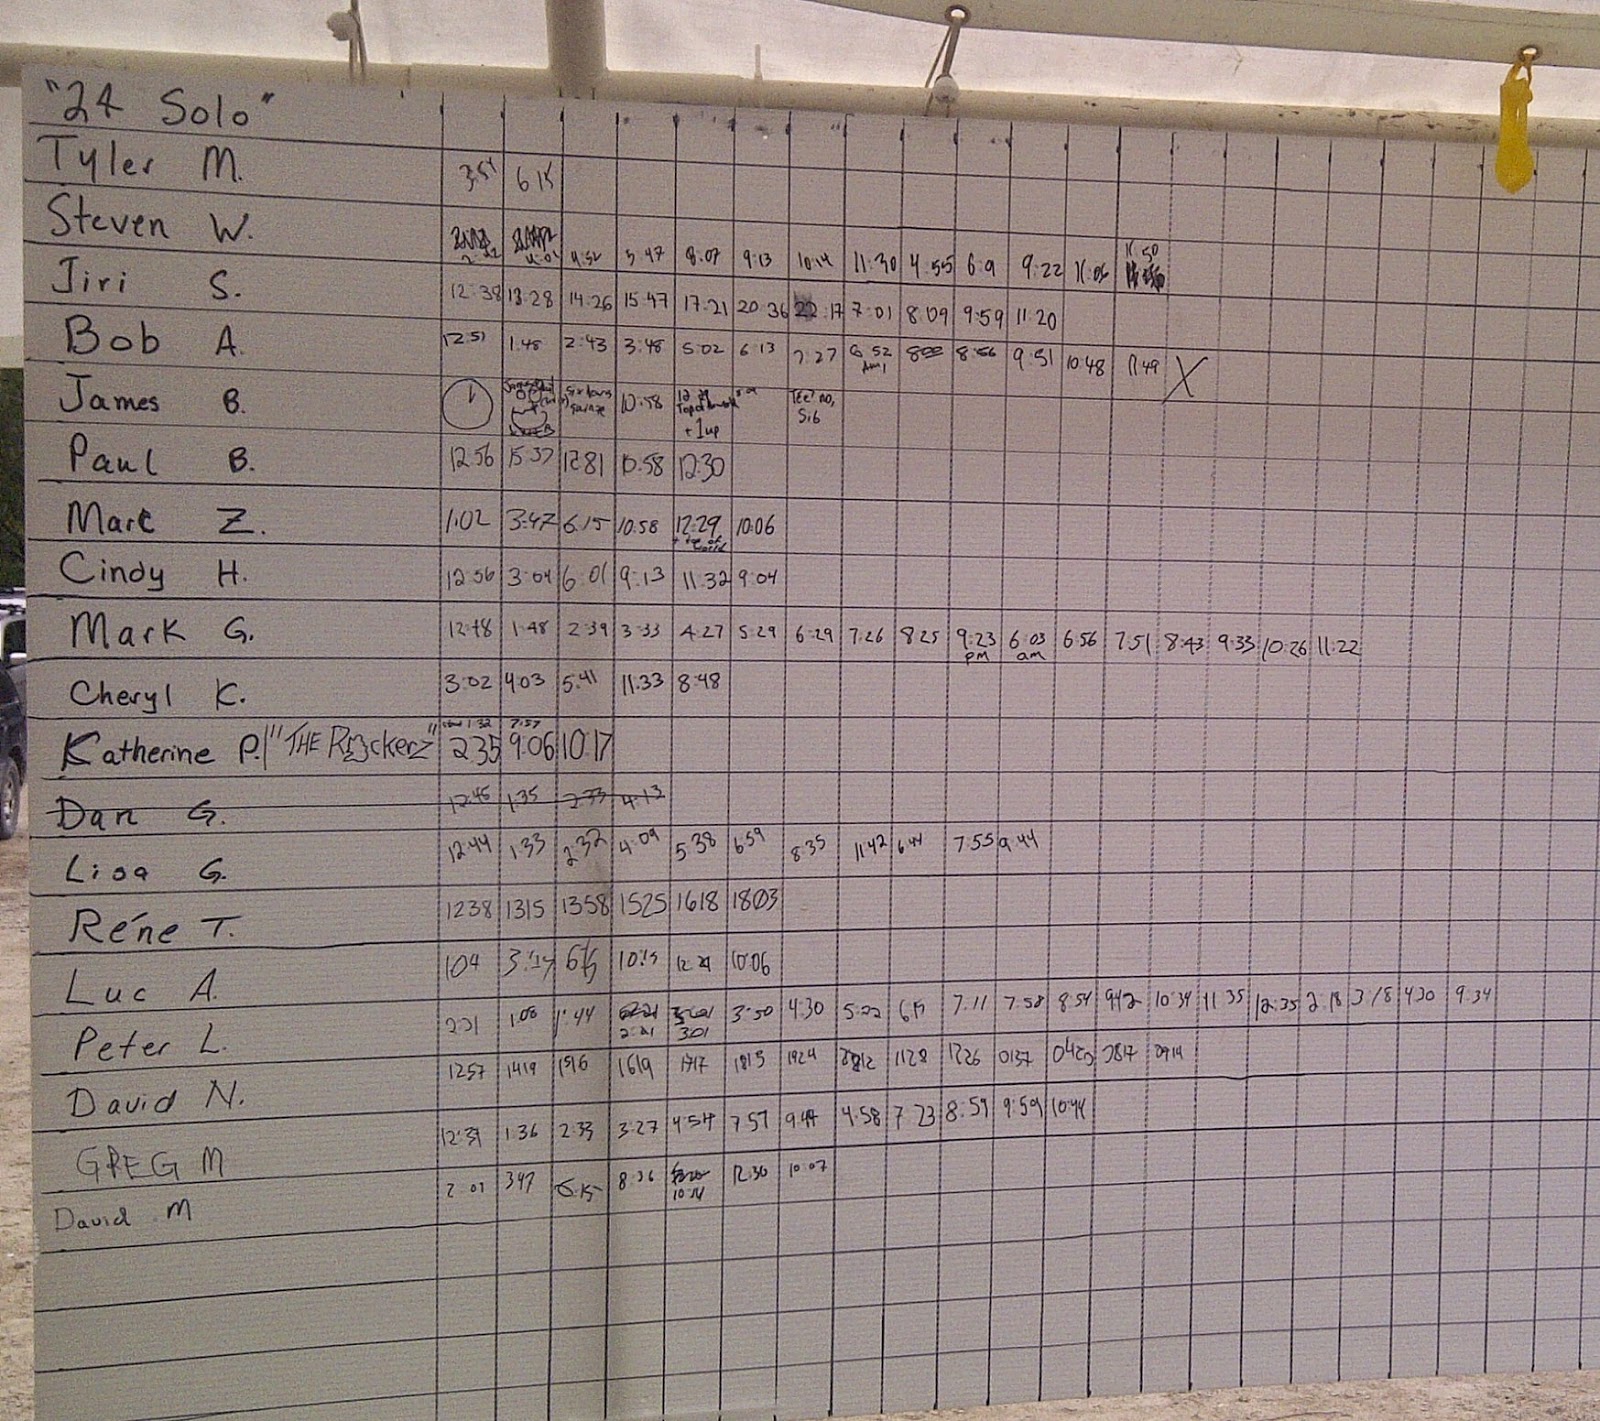 "24 Solo"
Tyler M. 3:51 6 15
Steven W. 4:52 5:47 8:07 9:13 10:14 11:30 4:55 6:9 9:22 11:06 11:50
Jiri S. 12:38 13:28 14:26 15:47 17:21 20:36 22:17 7:01 8:09 9:59 11:20
Bob A. 12:51 1:48 2:43 3:48 5:02 6:13 7:27 8:56 9:51 10:48 11:49 X
James B. 10:58 + 1up
Paul B. 12:56 15:37 12:81 10:58 12:30
Marc Z. 1:02 3:47 6:15 10:58 12:29 10:06
Cindy H. 12:56 3:04 6:01 9:13 11:32 9:04
Mark G. 12:48 1:48 2:39 3:33 4:27 5:29 6:29 7:26 8:25 9:23 pm 6:03 am 6:56 7:51 8:43 9:33 10:26 11:22
Cheryl K. 3:02 4:03 5:41 11:33 8:48
1:32 7:57
Katherine P. 2:35 9:06 10:17
Dan G. 12:45 1:35 2:33 4:13
Lisa G. 12:44 1:33 2:32 4:09 5:38 6:59 8:35 11:42 6:44 7:55 9:44
Réne T. 1238 1315 1358 1525 1618 1803
Luc A. 104 10:06
Peter L. 1:08 1:44 2:21 3:01 3:50 4:30 5:22 7:11 7:58 8:54 9:42 10:34 11:35 12:35 2:18 3:18 4:30 9:34
David N. 1257 1419 1516 1619 1717 1815 1924 1128 1226 0137 0420 0817 0914
GREG M 12:39 1:36 2:33 3:27 4:54 7:57 9:44 4:58 7:23 8:59 9:59 10:44
David M 2:07 347 6:15 8:36 10:14 12:30 10:07